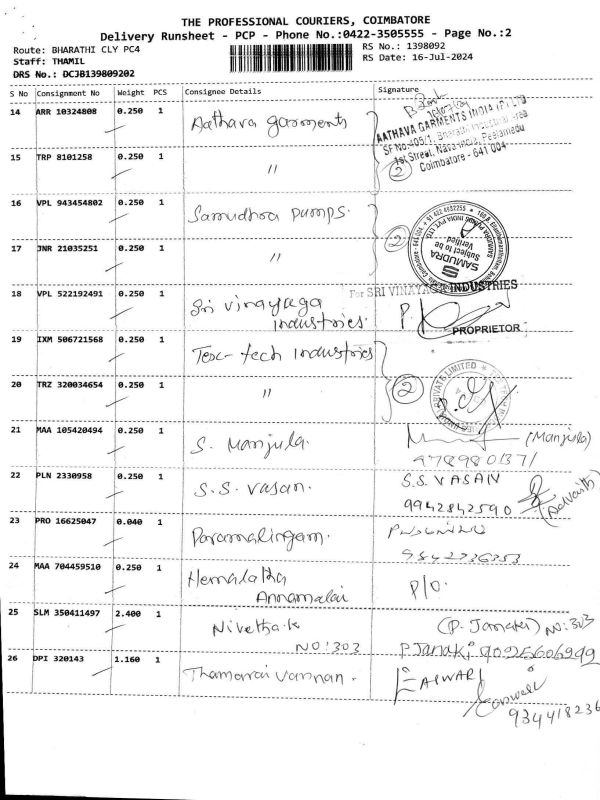 THE PROFESSIONAL COURIERS, COIMBATORE
Delivery Runsheet - PCP - Phone No.:0422-3505555 - Page No.:2
Route: BHARATHI CLY PC4
RS No.: 1398092
Staff: THAMIL
RS Date: 16-Jul-2024
DRS No.: DCJB139809202
S No Consignment No Weight PCS Consignee Details Signature
14 ARR 10324808 0.250 1 Aathava garments
AATHAVA GARMENTS INDIA (P) LTD
SF No.405/1, Bharathi Industrial Area
1st Street, Nava India, Peelamedu
Coimbatore - 641 004
15 TRP 8101258 0.250 1 " 2
16 VPL 943454802 0.250 1 Samudhra Pumps.
2
SAMUDRA
Subject to be
Verified
17 JNR 21035251 0.250 1 "
18 VPL 522192491 0.250 1 Sri Vinayaga
Industries.
For SRI VINAYAGA INDUSTRIES
P.
PROPRIETOR
19 IXM 506721568 0.250 1 Tex-tech Industries
PRIVATE LIMITED
20 TRZ 320034654 0.250 1 " 2
21 MAA 105420494 0.250 1 S. Manjula. (Manjula)
9789801371
22 PLN 2330958 0.250 1 S.S. Vasan. S.S. VASAN
9942842590
23 PRO 16625047 0.040 1 Paramalingam.
9842736353
24 MAA 704459510 0.250 1 Hemalatha
Annamalai
P/O.
25 SLM 350411497 2.400 1 Nivetha.k (P. Janaki) NO:303
NO:303 P.Janaki 9025606992
26 DPI 320143 1.160 1 Thamarai vannan. EASWARI
934418236